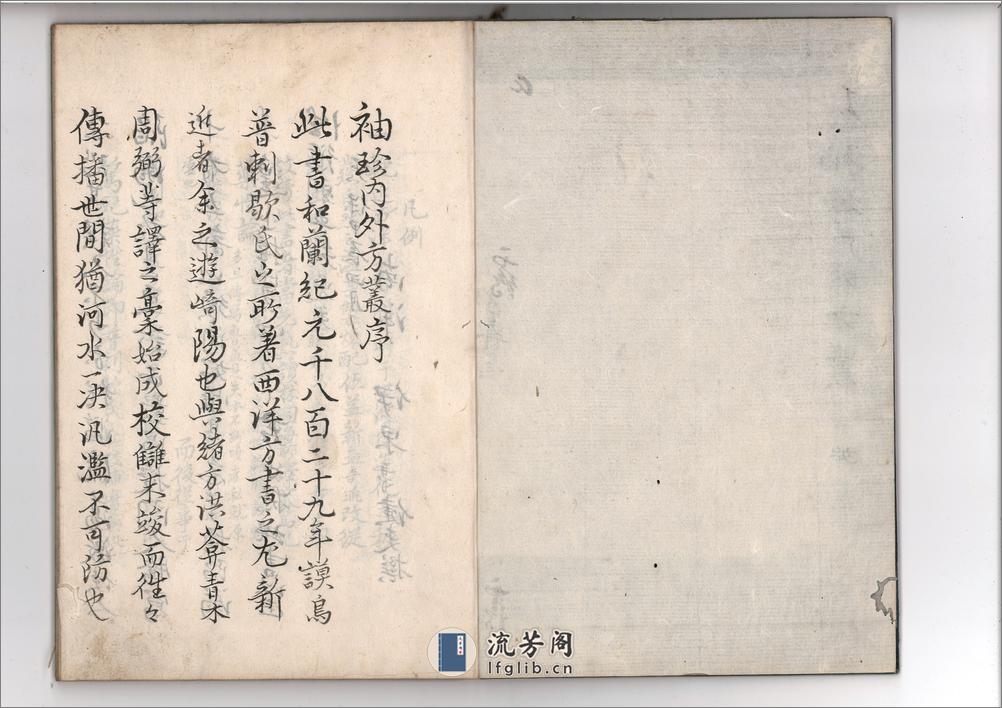 袖珍內外方叢序
此書和蘭紀元千八百二十九年謨烏
普刺歇氏之所著西洋方書之尤新
近者余之遊﨑陽也與緒方洪菴青木
周弼等譯之稾始成校讎未竣而徃々
傳播世間猶河水一决汎濫不可防也
凡例
流芳阁
lfglib.cn